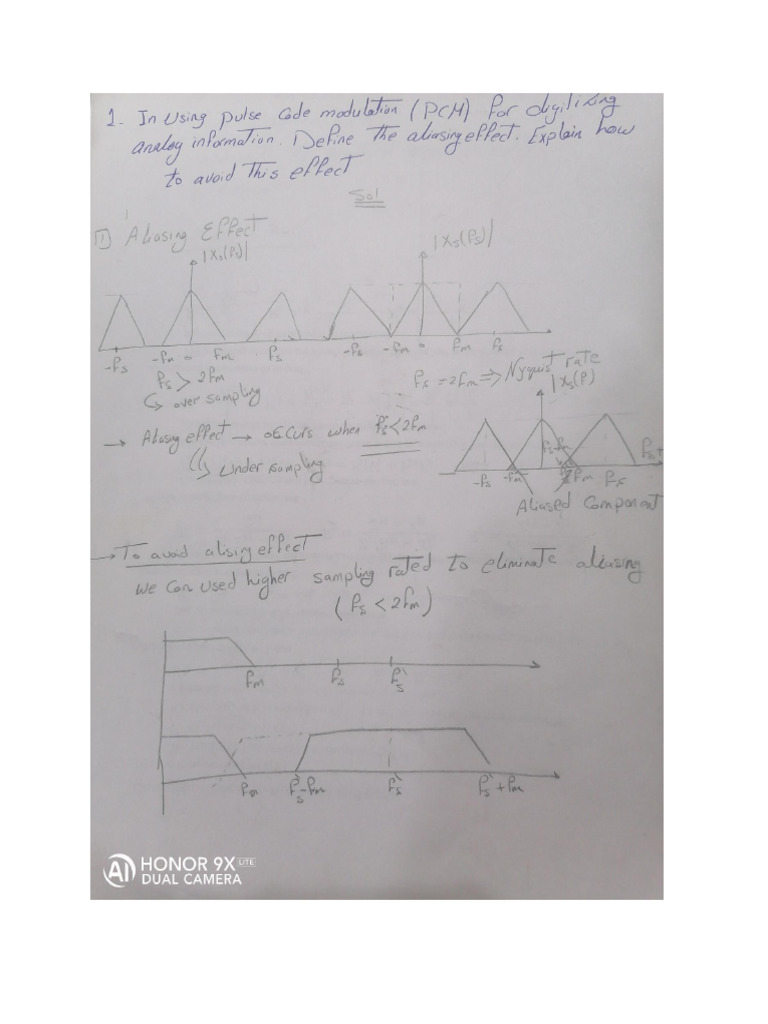 1- In using pulse code modulation (PCM) for digitizing
analog information. Define the aliasing effect. Explain how
to avoid this effect
Sol
1 Aliasing Effect
|Xs(fs)|
|Xs(fs)|
-fs -fm 0 fm fs
-fs -fm 0 fm fs
fs > 2fm
over sampling
fs = 2fm ⇒ Nyquist rate
|Xs(f)|
→ Aliasing effect → occurs when fs < 2fm
under sampling
fs-fm
-fs -fm fm fs
Aliased Component
→ To avoid alising effect
we can used higher sampling rated to eliminate aliasing
(fs < 2fm)
fm fs f's
fm f's-fm f's f's+fm
HONOR 9X LITE
AI DUAL CAMERA